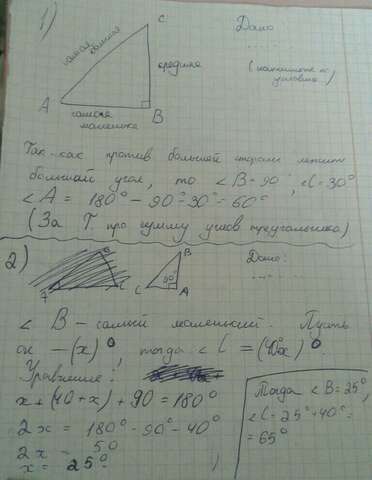 1)
C
Дано
самая большая
.....
средняя
(напишите по условию)
A
самая маленькая
B
Так как против большой стороны лежит
большой угол, то ∠B=90°, ∠C=30°
∠A = 180° - 90° - 30° = 60°
(За Т. про сумму углов треугольника)
2)
B
Дано:
.....
90°
C
A
∠ B - самый маленький. Пусть
он - (x)°, тогда ∠C = (40+x)°.
Уравнение:
x + (40+x) + 90 = 180°
2x = 180° - 90° - 40°
2x = 50
x = 25°
Тогда ∠B = 25°,
∠C = 25° + 40° =
= 65°